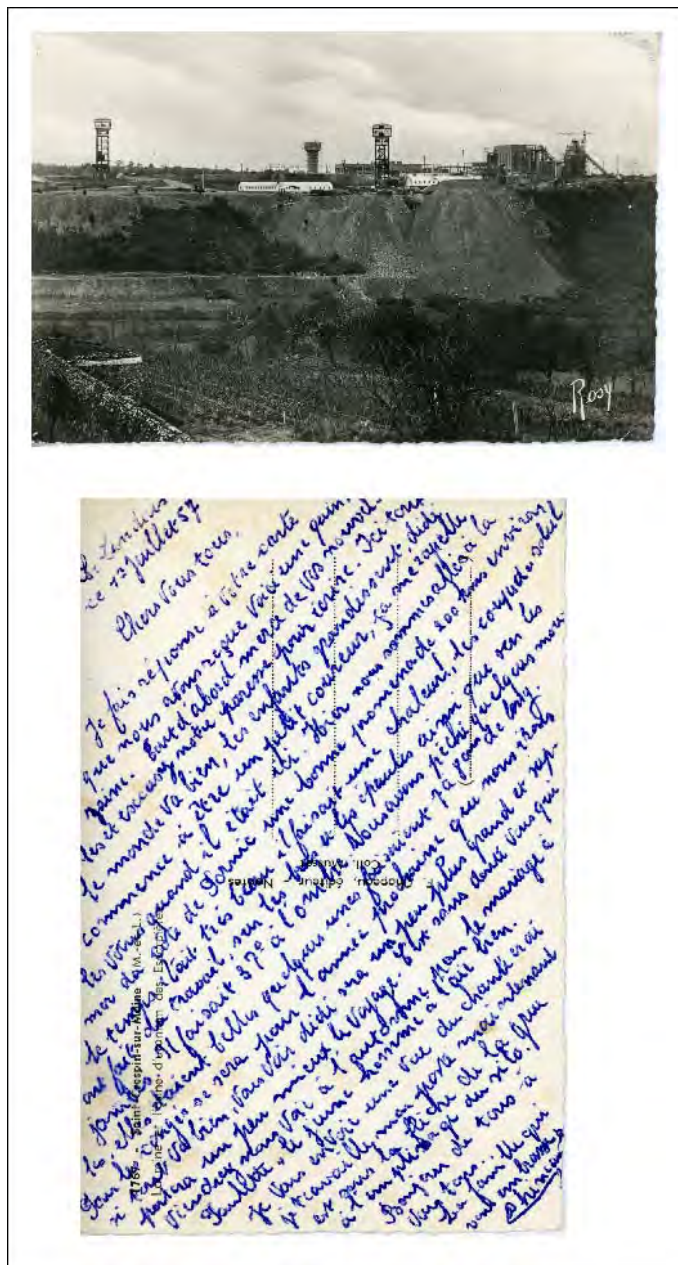 Rosy
ce 13 Juillet 57
Chers Vous tous,
Je fais réponse à votre carte
que nous avons reçue voici une quin-
zaine. Tout d'abord merci de vos nouvel-
les et excusez notre paresse pour écrire. Ici tout
le monde va bien, les enfants grandissent, didi
commence à être un petit coureur, ça me rapelle
les votres quand il était ici. Hier nous sommes allés à la
mer du côté de Pornic une bonne promenade de 200 kms environ
le temps était très beau il faisait une chaleur, des coups de soleil
ont fait du travail, sur les et les épaules ainsi que vers les
jambes. Il faisait 37° à l'ombre. Nous avons péché quelques mou-
les, elles étaient belles quelques unes faisaient 7 à 8 cm de long.
Pour le congé se sera pour l'année prochaine que nous irons
si tout va bien, vous voir didi sera un peu plus grand et sup-
portera un peu mieux le voyage. C'est sans doute vous qui
viendrez nous voir à l'automne pour le mariage à
Paulette, le jeune homme a l'air bien.
Je vous envoie une vue du chantier où
je travaille, mon poste maintenant
est sous la flèche de la grue
à l'emplissage du silo.
Bonjour de tous à
vous tous.
La famille qui
vous embrasse
4766 - Saint-Crespin-sur-Moine (M.-&-L.)
La mine et l'usine d'uranium des Essarts
F. Chapeau, éditeur - Nantes
Coll. Musset